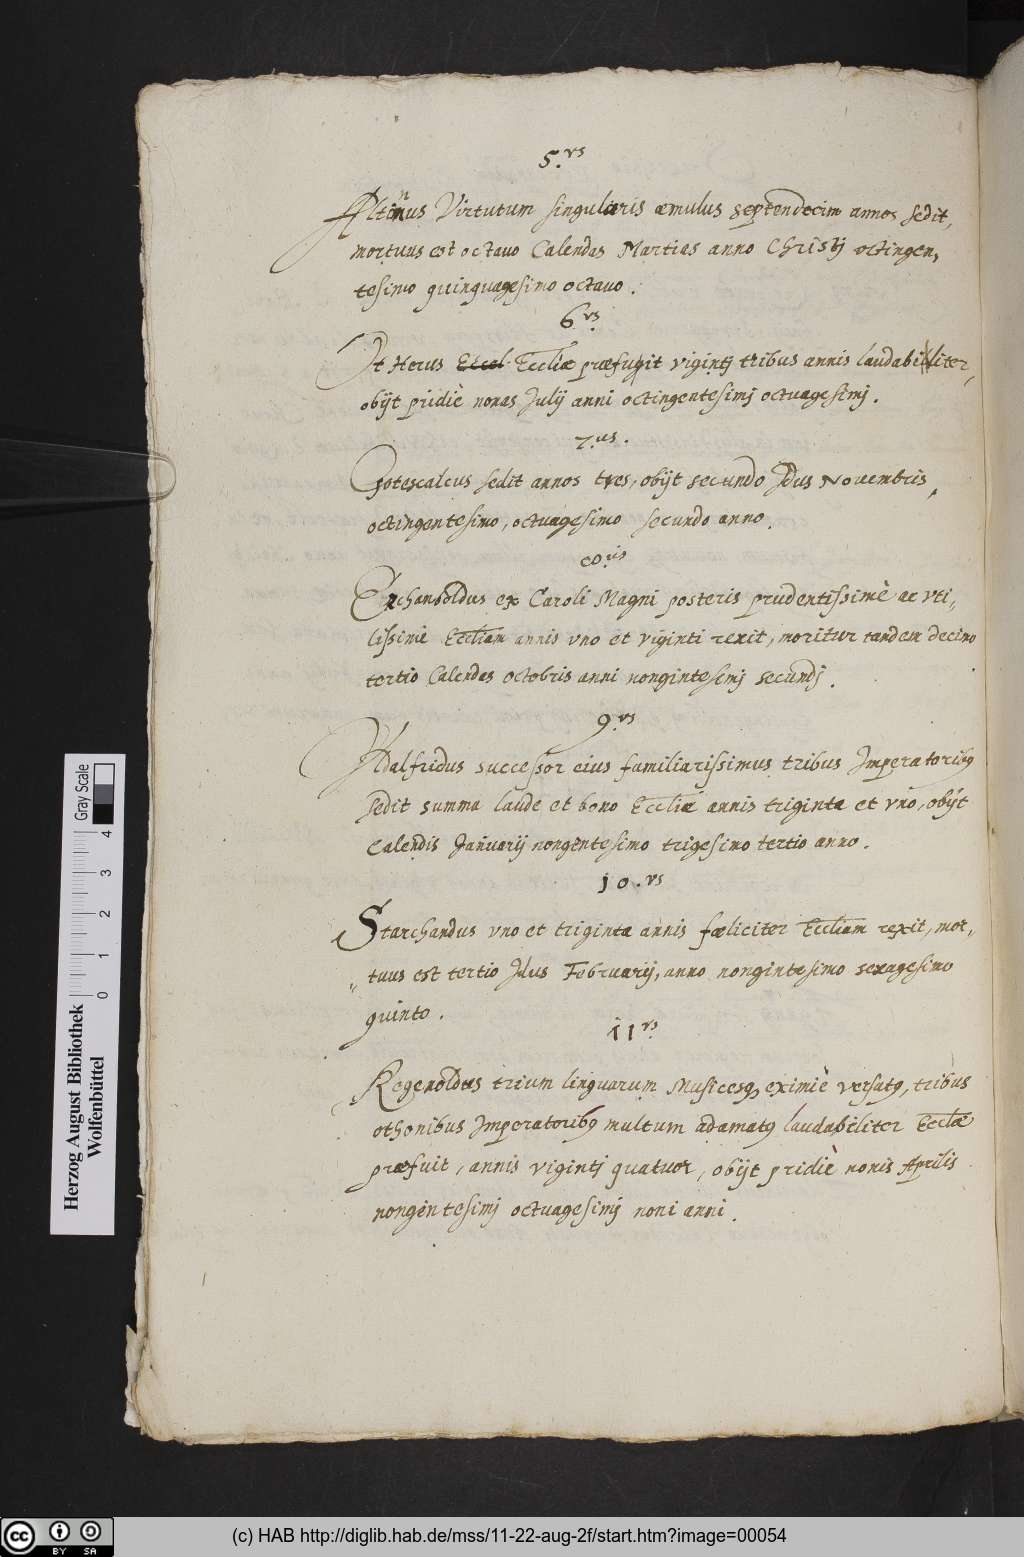 5.us
Altinus Virtutum singularis æmulus septendecim annos sedit,
mortuus est octauo Calendas Martias anno Christj octingen,
tesimo quinquagesimo octauo.
6.us
Ot Herus Eccel Eccliæ præfuit vigintj tribus annis laudabiliter,
obijt pridiè nonas Julij anni octingentesimj octuagesimj.
7.us.
Gotescalcus sedit annos tres, obijt secundo Jdus Nouembris,
octingentesimo, octuagesimo secundo anno.
Erchanboldus ex Caroli Magni posteris prudentissimè ac vti„
lissimè Eccliam annis vno et viginti rexit, moritur tandem decimo
tertio Calendas octobris anni nongintesimj secundj.
9.us
Vdalfridus successor eius familiarissimus tribus Jmperatoribus
sedit summa laude et bono Eccliæ annis triginta et vno, obijt
Calendis Januarij nongentesimo trigesimo tertio anno.
10.us
Starchandus vno et triginta annis fæliciter Eccliam rexit, mor,
„tuus est tertio Jdus Februarij, anno nongintesimo sexagesimo
quinto.
11.us
Regenoldus trium linguarum Musicesq, eximiè versatus, tribus
othonibus Jmperatoribus multum adamatus laudabiliter Eccliæ
præfuit, annis vigintj quatuor, obijt pridiè nonis Aprilis
nongentesimj octuagesimj noni anni.
Herzog August Bibliothek
Wolfenbüttel
0 1 2 3 4
Gray Scale
(c) HAB http://diglib.hab.de/mss/11-22-aug-2f/start.htm?image=00054
cc BY SA